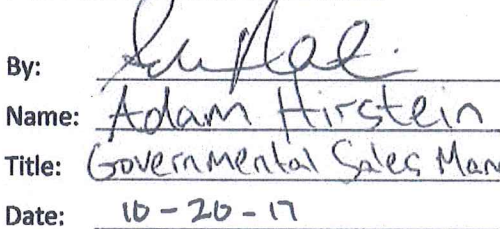 By:
Name: Adam Hirstein
Title: Governmental Sales Man
Date: 10-20-17